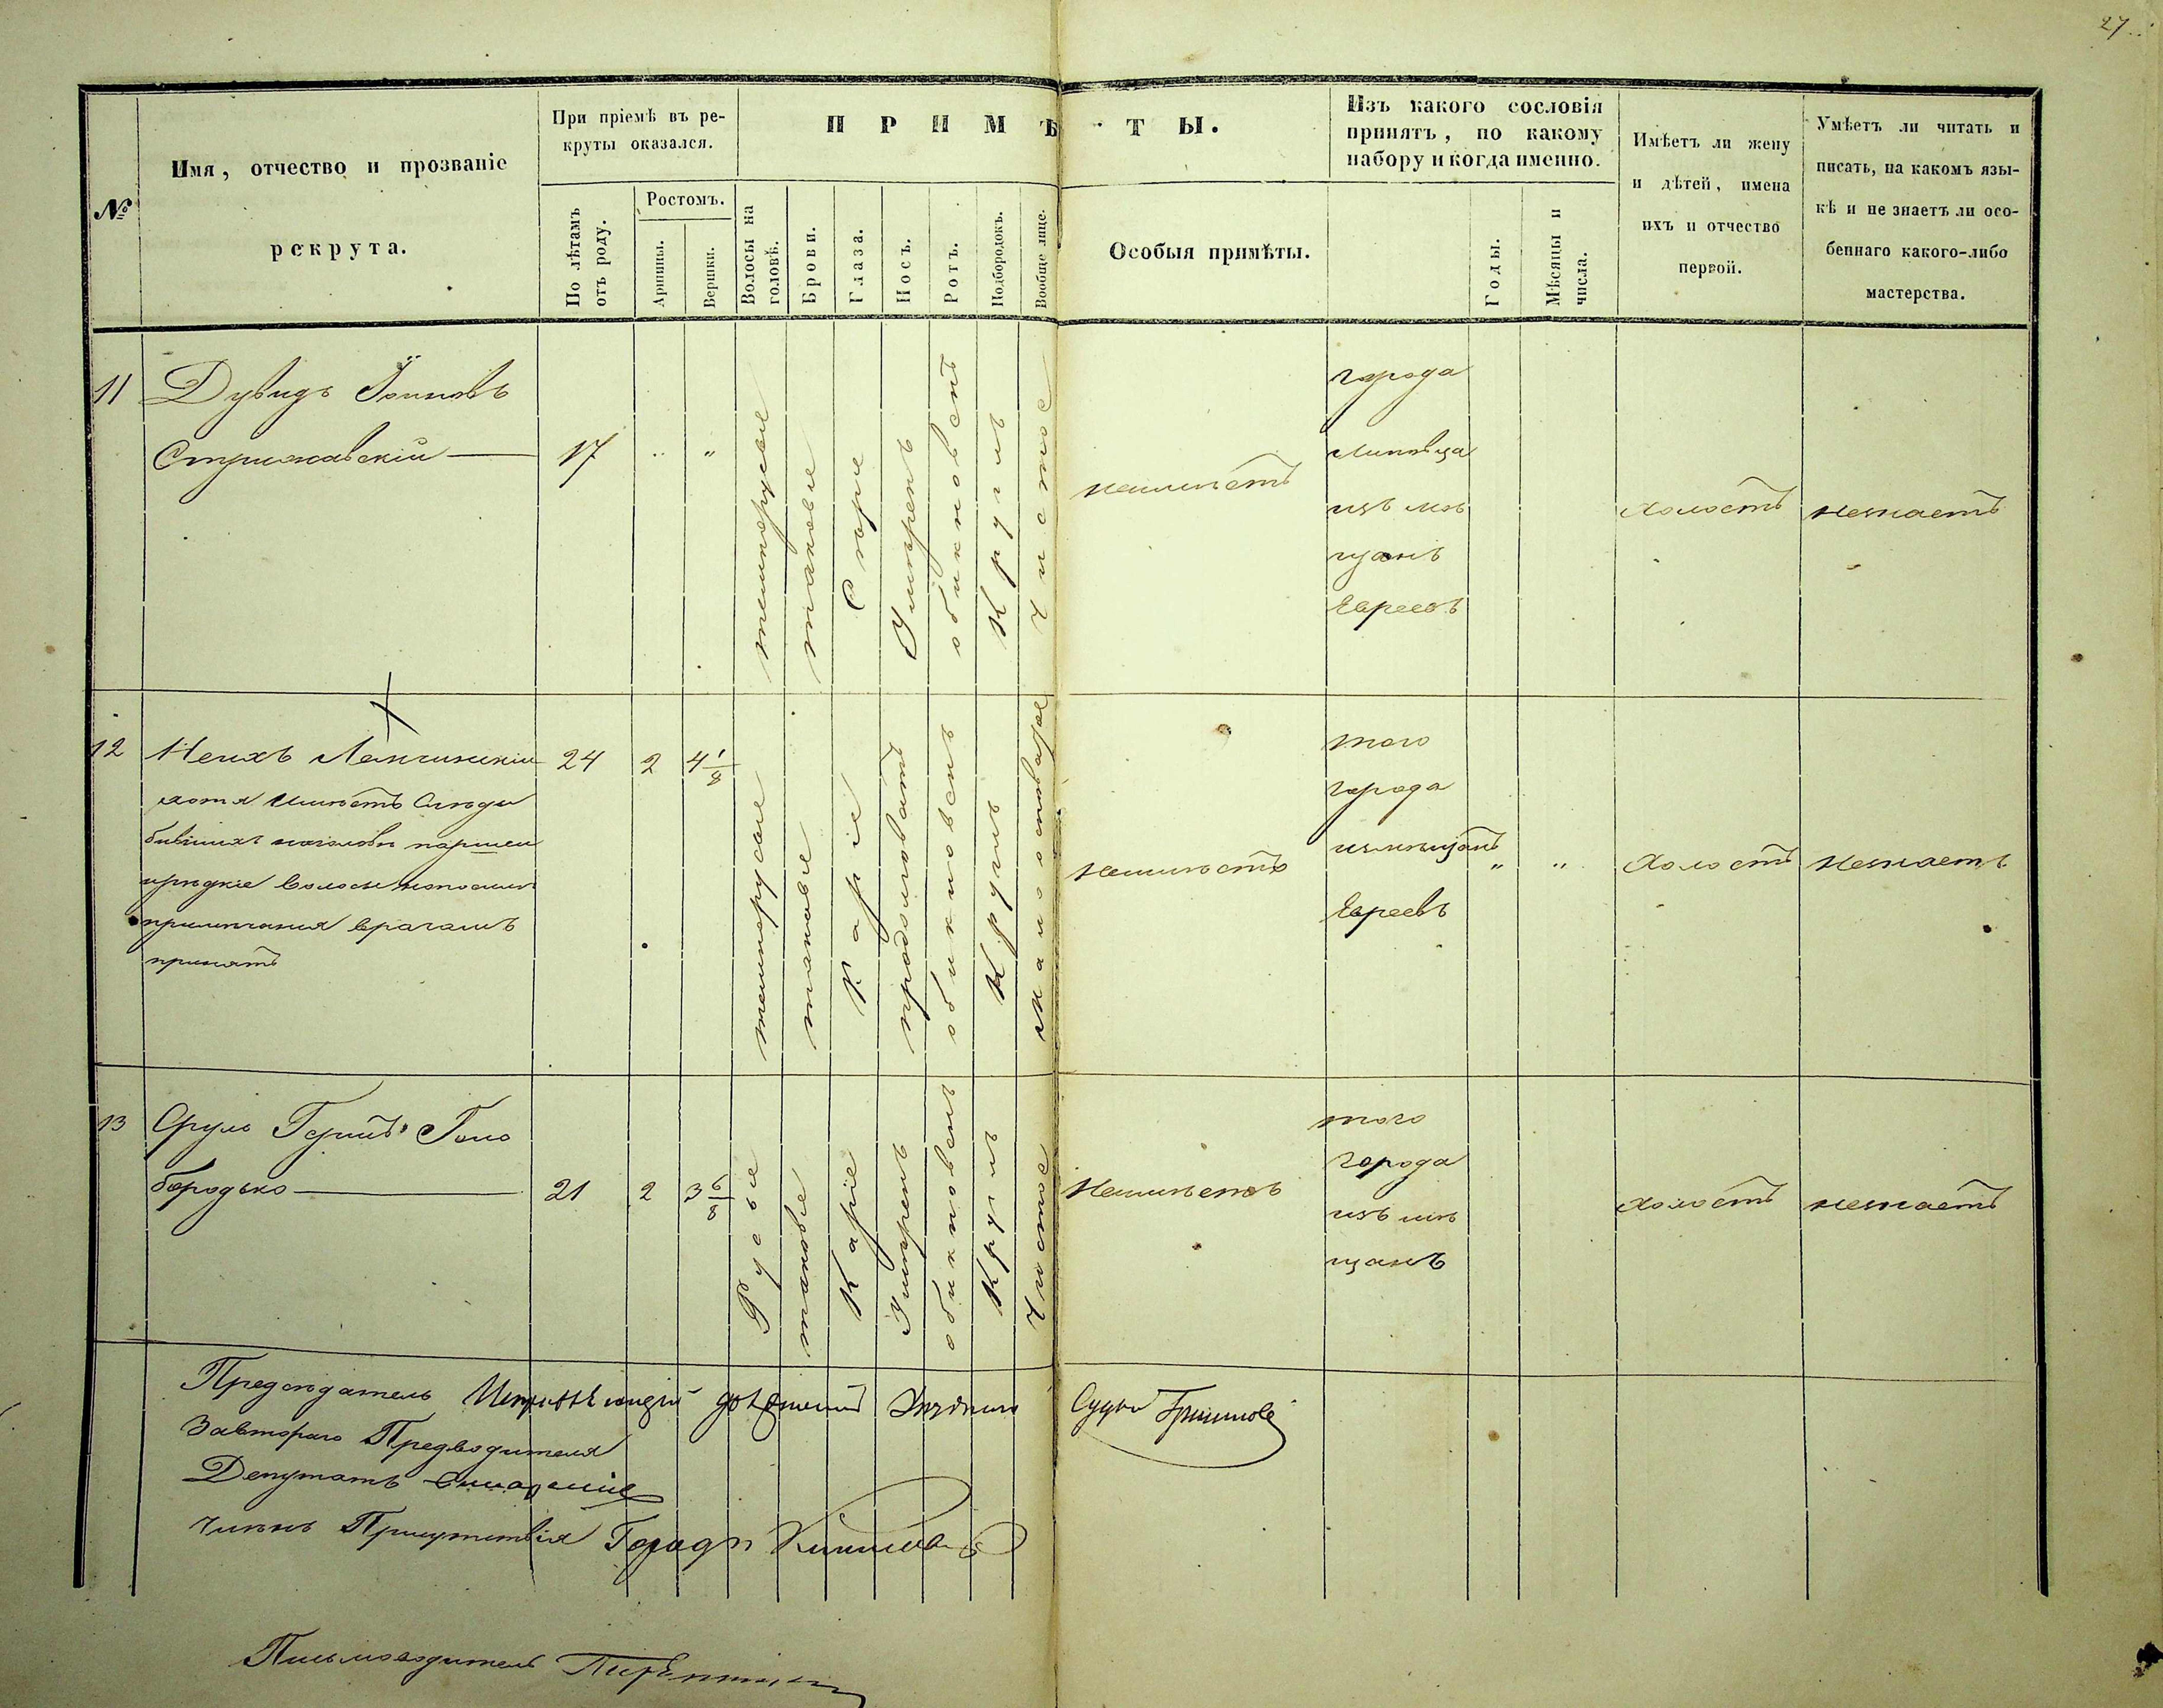 27
№
Имя, отчество и прозваніе
рекрута.
При пріемѣ въ ре-
круты оказался.
По лѣтамъ
отъ роду.
Ростомъ.
Аршины.
Вершки.
ПРИМѢТЫ.
Волосы на
головѣ.
Брови.
Глаза.
Носъ.
Ротъ.
Подбородокъ.
Вообще лице.
Особыя примѣты.
Изъ какого сословія
принятъ, по какому
набору и когда именно.
Годы.
Мѣсяцы и
числа.
Имѣетъ ли жену
и дѣтей, имена
ихъ и отчество
первой.
Умѣетъ ли читать и
писать, на какомъ язы-
кѣ и не знаетъ ли осо-
беннаго какого-либо
мастерства.
11
Дувидъ
Стрижавскій
17
" "
темнорусые
таковые
Сѣрые
Умѣренъ
обикновенъ
Круглъ
Чистое
неимѣетъ
города
Липовца
изъ мѣ
щанъ
Евреевъ
холостъ
незнаетъ
12
хотя имѣетъ Слѣды
бывшихъ
рѣдкіе волосы
врачамъ
принятъ
24
2
4 1/8
темнорусые
таковые
Каріе
продолговатъ
обикновенъ
Круглъ
неимѣетъ
того
города
измѣщанъ
Евреевъ
" "
холостъ
незнаетъ
13
Сруль Голо
бородько
21
2
3 6/8
Русые
таковые
Каріе
Умѣренъ
обикновенъ
Круглъ
Чистое
Неимѣетъ
того
города
изъ мѣ
щанъ
холостъ
незнаетъ
Предсѣдатель
Судья
Предводителя
Депутатъ
Членъ Присутствія
Письмоводитель